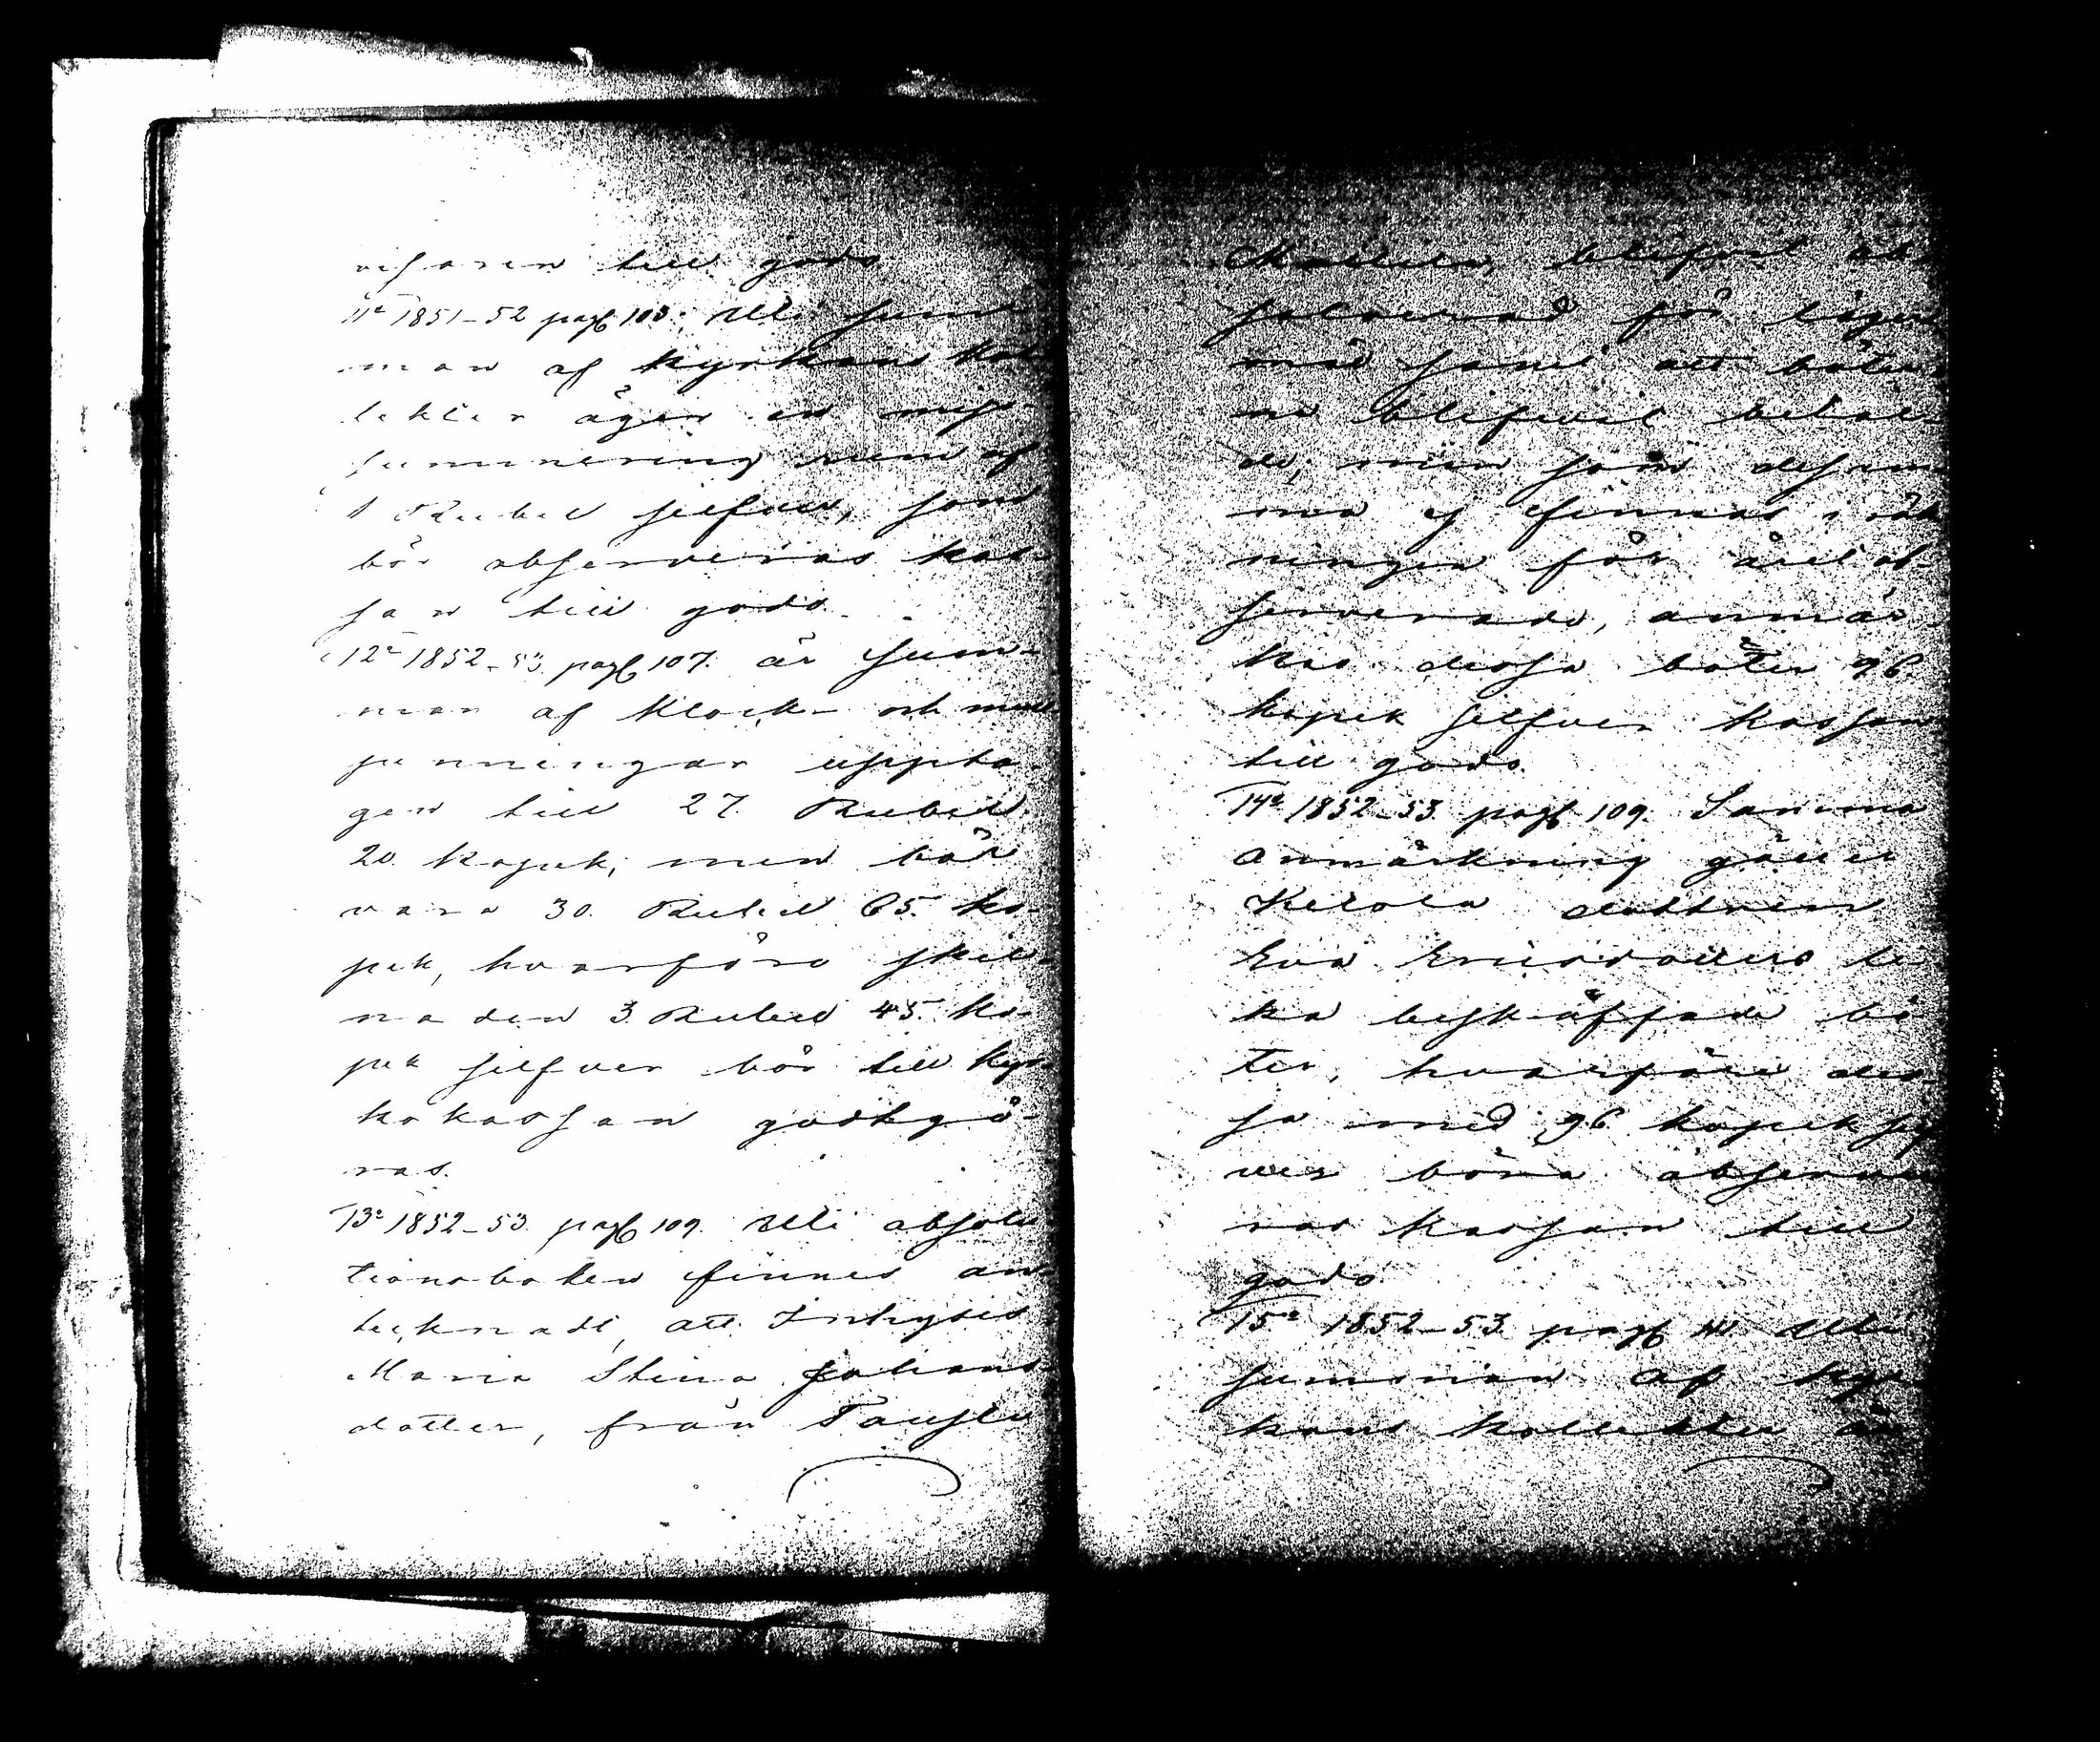 visaren till godo
11º 1851-52 pag 103. Uti sum-
man af Kyrkans Kol-
lekter äger en miss-
summering rum af
1 Rubel silfver, som
bör observeras Kas-
san till godo.
12º 1852-53. pag 107. är Sum-
man af Klock- och mull
penningar uppta-
gen till 27. Rubel
20. Kopek, men bör
vara 30. Rubel 65. Ko-
pek, hvarföre skill-
naden 3. Rubel 45. Ko-
pek silfver bör till Kyr-
kokassan godtgö-
ras.
13º 1852-53. pag 109. Uti absolu-
tionsboken finnes an-
tecknadt, att Inhyses
Maria Stina Johans
dotter, från
blifvit ab-
solverad för läger-
mål samt att böter-
na blifvit betal-
de, men som dessam-
ma ej finnas i räk-
ningen för året ob-
serverade, anmär-
kas dessa böter 96.
kopek silfver Kassan
till godo.
14º 1852-53. pag 109. Samma
Anmärkning gäller
dottren
Eva Ericsdotters li-
ka beskaffade bö-
ter, hvarföre des-
sa med 96 kopek sil-
ver böra observe-
ras Kassan till
godo
15º 1852-53. pag Uti
summan af Kyr-
kans Kollekter är